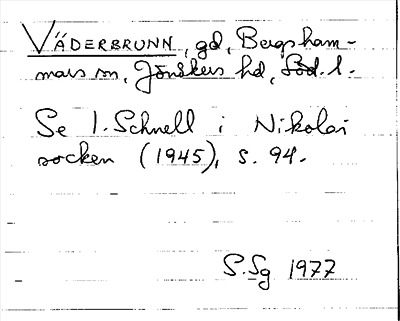 VÄDERBRUNN, gd, Bergsham-
mars sn, Jönåkers hd, Söd. l.
Se I. Schnell i Nikolai
socken (1945), s. 94.
S. Sg 1977